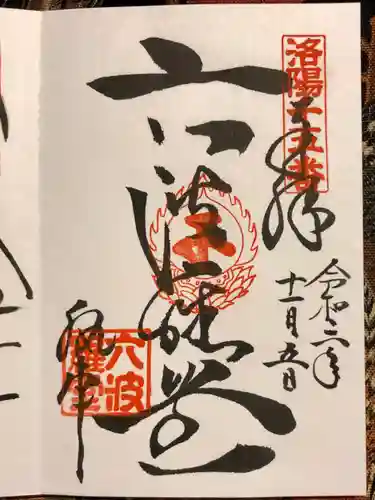 洛陽十五番
奉拝
令和二年
十一月五日
六波羅堂
六波
羅堂